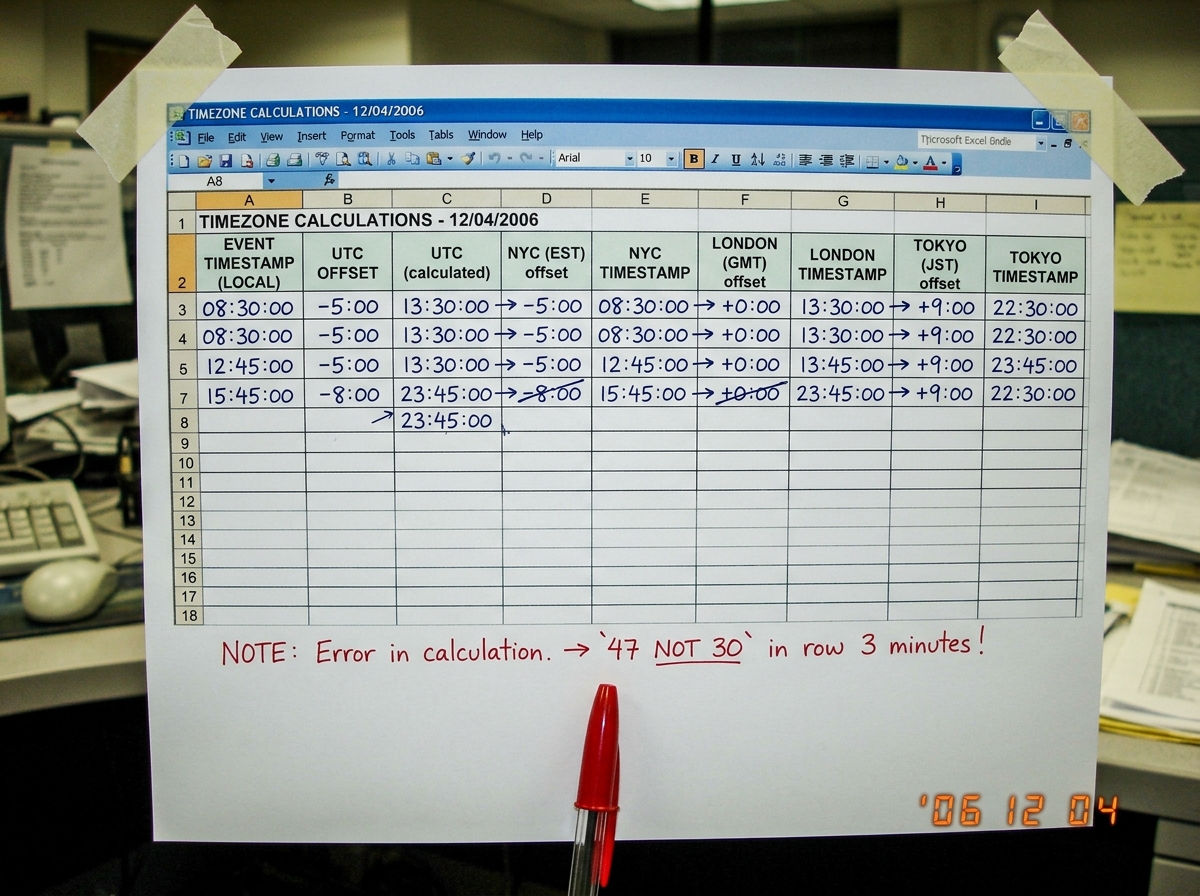 TIMEZONE CALCULATIONS - 12/04/2006
File Edit View Insert Format Tools Tabls Window Help
Arial 10 B I U
A8 fx
A B C D E F G H I
1 TIMEZONE CALCULATIONS - 12/04/2006
2 EVENT TIMESTAMP (LOCAL) UTC OFFSET UTC (calculated) NYC (EST) offset NYC TIMESTAMP LONDON (GMT) offset LONDON TIMESTAMP TOKYO (JST) offset TOKYO TIMESTAMP
3 08:30:00 -5:00 13:30:00 → -5:00 08:30:00 → +0:00 13:30:00 → +9:00 22:30:00
4 08:30:00 -5:00 13:30:00 → -5:00 08:30:00 → +0:00 13:30:00 → +9:00 22:30:00
5 12:45:00 -5:00 13:30:00 → -5:00 12:45:00 → +0:00 13:45:00 → +9:00 23:45:00
7 15:45:00 -8:00 23:45:00 → -8:00 15:45:00 → +0:00 23:45:00 → +9:00 22:30:00
8 → 23:45:00
9
10
11
12
13
14
15
16
17
18
NOTE: Error in calculation. → `47 NOT 30` in row 3 minutes!
'06 12 04